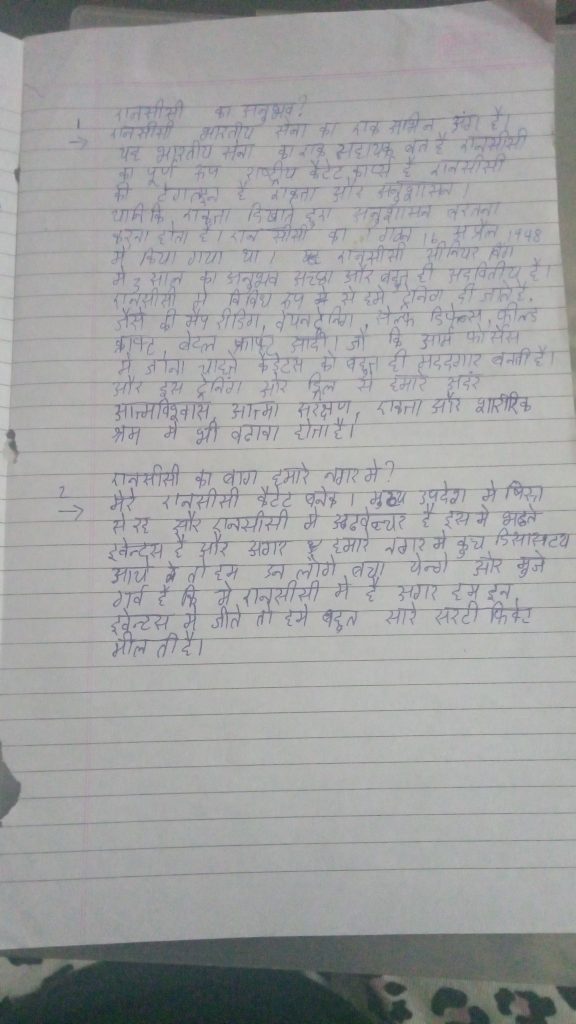 रानसीसी का अनुभव?
1 → रानसीसी भारतीय सेना का राक अभिन अंग है।
यह भारतीय सेना का राक सहायक बल है रानसीसी
का पूर्ण रूप राष्ट्रीय कैटेट काप्स है रानसीसी
की टेगलाइन है राकता और अनुशासन।
यानिकि राकता दिखाते हुरा अनुशासन बरतना
करना होता है। रान सीसी का गठन 16 अप्रेल 1948
मे किया गया था। रानसीसी सीनियर विंग
मे 3 साल का अनुभव अच्छा और बहुत ही अद्वितीय है।
रानसीसी से विविध रूप से हमे ट्रेनिंग दी जाते है.
जैसे की मेप रीडिंग, वेपन ट्रेनिंग, सेल्फ डिफेन्स, फील्ड
क्राफ्ट, बेटल क्राफ्ट आदी। जो कि आर्म फोर्सेस
मे जाना चाहते केडेटस को बहुत ही मददगार बनती है।
और इस ट्रेनिंग और ड्रिल से हमारे अंदर
आत्मविश्वास, आत्मा संरक्षण, राकता और शारीरिक
श्रम मे भी बढावा होता है।
रानसीसी का वाग हमारे नगर मे?
2 → मेरे रानसीसी केटेट बनके। मुख्य उपदेश मे हिस्सा
ले रहे और रानसीसी मे अडवेन्चर है इस मे बहुत
इवेन्टस है और अगर हमारे नगर मे कुच डिसास्टर
आये तो हम उन लोगो बचा येन्गे और मुजे
गर्व है कि मे रानसीसी मे है अगर हम इन
इवेन्टस मे जीते तो हमे बहुत सारे सरटी फिकेट
मील ती है।